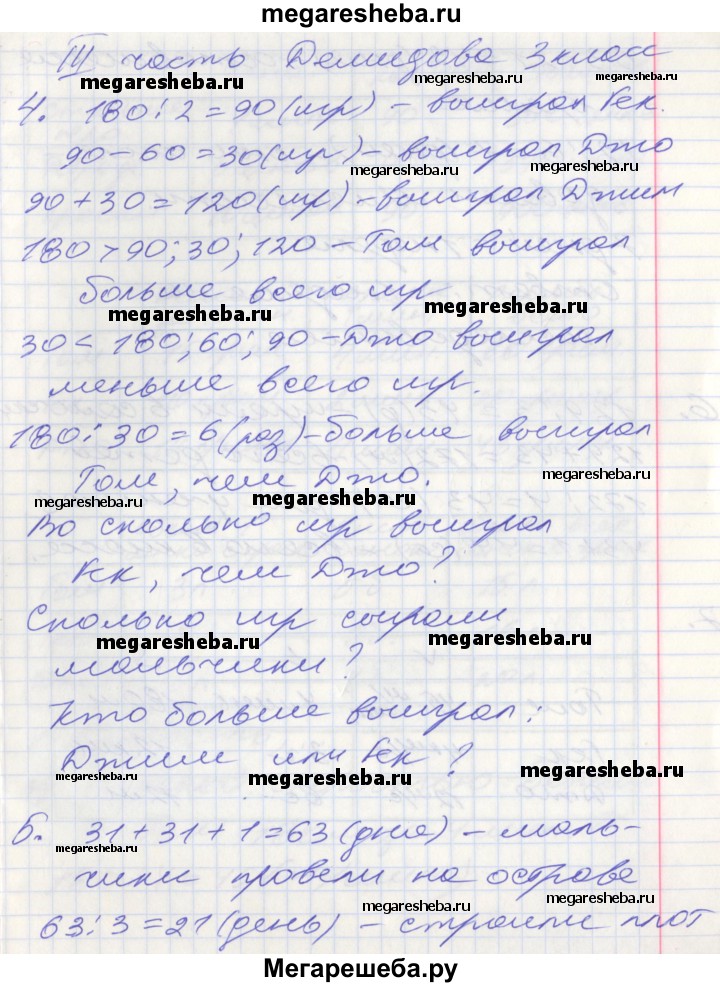 megaresheba.ru
III часть Демидова 3 класс
megaresheba.ru megaresheba.ru megaresheba.ru
4. 180 : 2 = 90 (игр) – выиграл Гек.
90 – 60 = 30 (игр) – выиграл Джо
megaresheba.ru megaresheba.ru
90 + 30 = 120 (игр) – выиграл Джим
180 > 90; 30; 120 – Том выиграл
больше всего игр
megaresheba.ru megaresheba.ru
30 < 180; 60; 90 – Джо выиграл
меньше всего игр.
180 : 30 = 6 (раз) – больше выиграл
Том, чем Джо.
megaresheba.ru megaresheba.ru megaresheba.ru
Во сколько игр выиграл
Гек, чем Джо?
Сколько игр сыграли
megaresheba.ru megaresheba.ru
мальчики?
Кто больше выиграл:
Джим или Гек?
megaresheba.ru megaresheba.ru megaresheba.ru
5. 31 + 31 + 1 = 63 (дня) – маль-
megaresheba.ru megaresheba.ru
чики провели на острове
megaresheba.ru megaresheba.ru
63 : 3 = 21 (день) – строили плот
Мегарешеба.ру